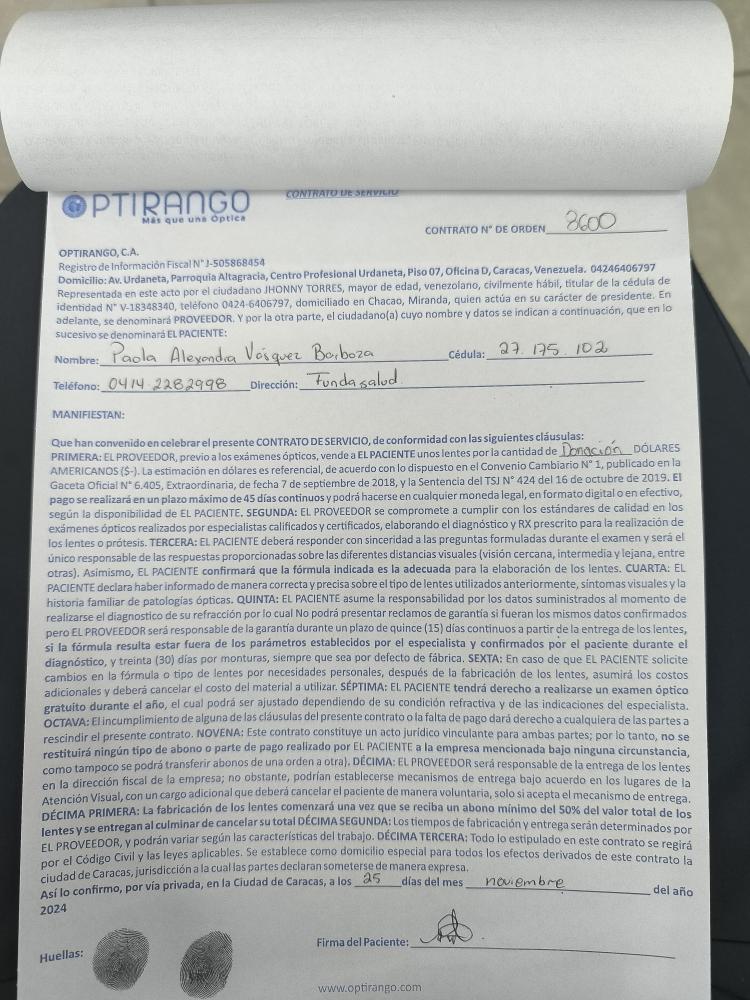 CONTRATO DE SERVICIO
OPTIRANGO
Más que una Óptica
CONTRATO N° DE ORDEN 3600
OPTIRANGO, C.A.
Registro de Información Fiscal N° J-505868454
Domicilio: Av. Urdaneta, Parroquia Altagracia, Centro Profesional Urdaneta, Piso 07, Oficina D, Caracas, Venezuela. 04246406797
Representada en este acto por el ciudadano JHONNY TORRES, mayor de edad, venezolano, civilmente hábil, titular de la cédula de
identidad N° V-18348340, teléfono 0424-6406797, domiciliado en Chacao, Miranda, quien actúa en su carácter de presidente. En
adelante, se denominará PROVEEDOR. Y por la otra parte, el ciudadano(a) cuyo nombre y datos se indican a continuación, que en lo
sucesivo se denominará EL PACIENTE:
Nombre: Paola Alexandra Vásquez Barboza Cédula: 27.175.102
Teléfono: 0414 2282998 Dirección: Fundasalud.
MANIFIESTAN:
Que han convenido en celebrar el presente CONTRATO DE SERVICIO, de conformidad con las siguientes cláusulas:
PRIMERA: EL PROVEEDOR, previo a los exámenes ópticos, vende a EL PACIENTE unos lentes por la cantidad de Donación DÓLARES
AMERICANOS ($-). La estimación en dólares es referencial, de acuerdo con lo dispuesto en el Convenio Cambiario N° 1, publicado en la
Gaceta Oficial N° 6.405, Extraordinaria, de fecha 7 de septiembre de 2018, y la Sentencia del TSJ N° 424 del 16 de octubre de 2019. El
pago se realizará en un plazo máximo de 45 días continuos y podrá hacerse en cualquier moneda legal, en formato digital o en efectivo,
según la disponibilidad de EL PACIENTE. SEGUNDA: EL PROVEEDOR se compromete a cumplir con los estándares de calidad en los
exámenes ópticos realizados por especialistas calificados y certificados, elaborando el diagnóstico y RX prescrito para la realización de
los lentes o prótesis. TERCERA: EL PACIENTE deberá responder con sinceridad a las preguntas formuladas durante el examen y será el
único responsable de las respuestas proporcionadas sobre las diferentes distancias visuales (visión cercana, intermedia y lejana, entre
otras). Asimismo, EL PACIENTE confirmará que la fórmula indicada es la adecuada para la elaboración de los lentes. CUARTA: EL
PACIENTE declara haber informado de manera correcta y precisa sobre el tipo de lentes utilizados anteriormente, síntomas visuales y la
historia familiar de patologías ópticas. QUINTA: EL PACIENTE asume la responsabilidad por los datos suministrados al momento de
realizarse el diagnostico de su refracción por lo cual No podrá presentar reclamos de garantía si fueran los mismos datos confirmados
pero EL PROVEEDOR será responsable de la garantía durante un plazo de quince (15) días continuos a partir de la entrega de los lentes,
si la fórmula resulta estar fuera de los parámetros establecidos por el especialista y confirmados por el paciente durante el
diagnóstico, y treinta (30) días por monturas, siempre que sea por defecto de fábrica. SEXTA: En caso de que EL PACIENTE solicite
cambios en la fórmula o tipo de lentes por necesidades personales, después de la fabricación de los lentes, asumirá los costos
adicionales y deberá cancelar el costo del material a utilizar. SÉPTIMA: EL PACIENTE tendrá derecho a realizarse un examen óptico
gratuito durante el año, el cual podrá ser ajustado dependiendo de su condición refractiva y de las indicaciones del especialista.
OCTAVA: El incumplimiento de alguna de las cláusulas del presente contrato o la falta de pago dará derecho a cualquiera de las partes a
rescindir el presente contrato. NOVENA: Este contrato constituye un acto jurídico vinculante para ambas partes; por lo tanto, no se
restituirá ningún tipo de abono o parte de pago realizado por EL PACIENTE a la empresa mencionada bajo ninguna circunstancia,
como tampoco se podrá transferir abonos de una orden a otra). DÉCIMA: EL PROVEEDOR será responsable de la entrega de los lentes
en la dirección fiscal de la empresa; no obstante, podrían establecerse mecanismos de entrega bajo acuerdo en los lugares de la
Atención Visual, con un cargo adicional que deberá cancelar el paciente de manera voluntaria, solo si acepta el mecanismo de entrega.
DÉCIMA PRIMERA: La fabricación de los lentes comenzará una vez que se reciba un abono mínimo del 50% del valor total de los
lentes y se entregan al culminar de cancelar su total DÉCIMA SEGUNDA: Los tiempos de fabricación y entrega serán determinados por
EL PROVEEDOR, y podrán variar según las características del trabajo. DÉCIMA TERCERA: Todo lo estipulado en este contrato se regirá
por el Código Civil y las leyes aplicables. Se establece como domicilio especial para todos los efectos derivados de este contrato la
ciudad de Caracas, jurisdicción a la cual las partes declaran someterse de manera expresa.
Así lo confirmo, por vía privada, en la Ciudad de Caracas, a los 25 días del mes noviembre del año
2024
Huellas:
Firma del Paciente:
www.optirango.com